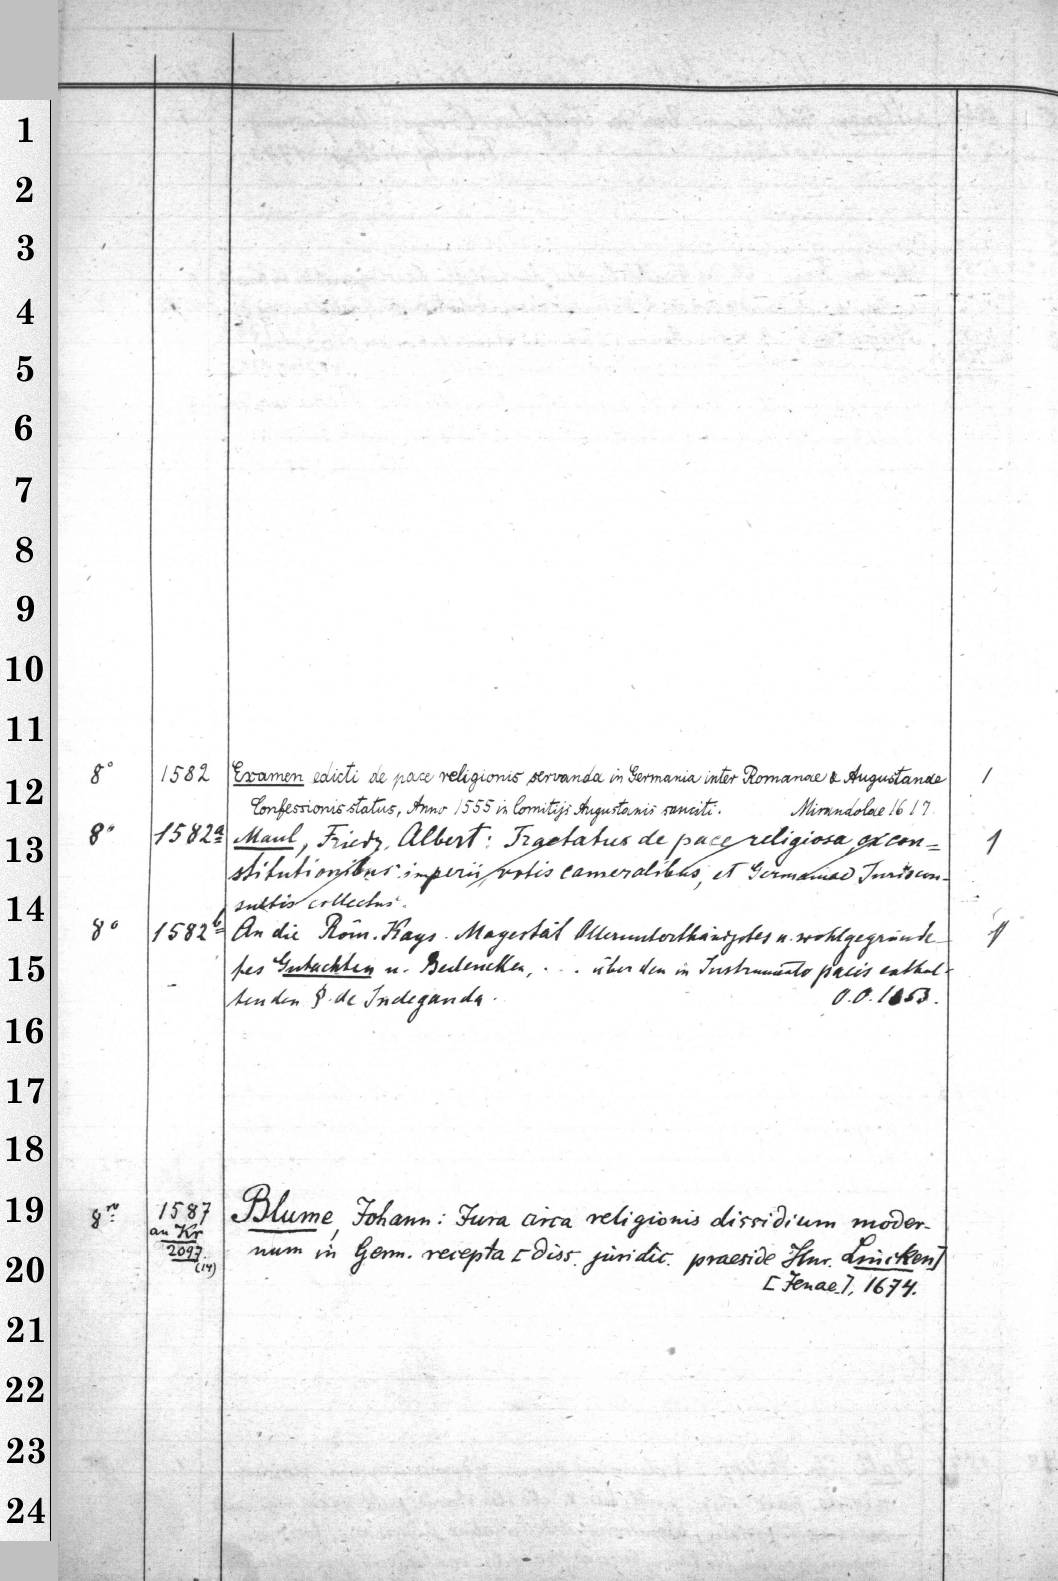 1
2
3
4
5
6
7
8
9
10
11
12
13
14
15
16
17
18
19
20
21
22
23
24
8° 1582 Examen edicti de pace religionis servanda in Germania inter Romanae & Augustanae 1
Confessionis status, Anno 1555 in Comitijs Augustanis sanciti. Mirandolae 1617
8° 1582a Maul, Friedr. Albert: Tractatus de pace religiosa ex con= 1
stitutionibus imperii, votis cameralibus, et Germaniae Juriscon-
sultis collectus.
8° 1582b An die Röm. Kays. Mayestät Allerunterthänigstes u. wohlgegründe- 1
tes Gutachten u. Bedencken, . . . über den in Instrumento pacis enthal-
tenden §. de Indaganda. O.O. 1653.
8vo 1587 Blume, Johann: Jura circa religionis dissidium moder-
an Kr
2097 num in Germ. recepta [Diss. juridic. praeside Hnr. Lincken]
(14)
[Jenae], 1674.